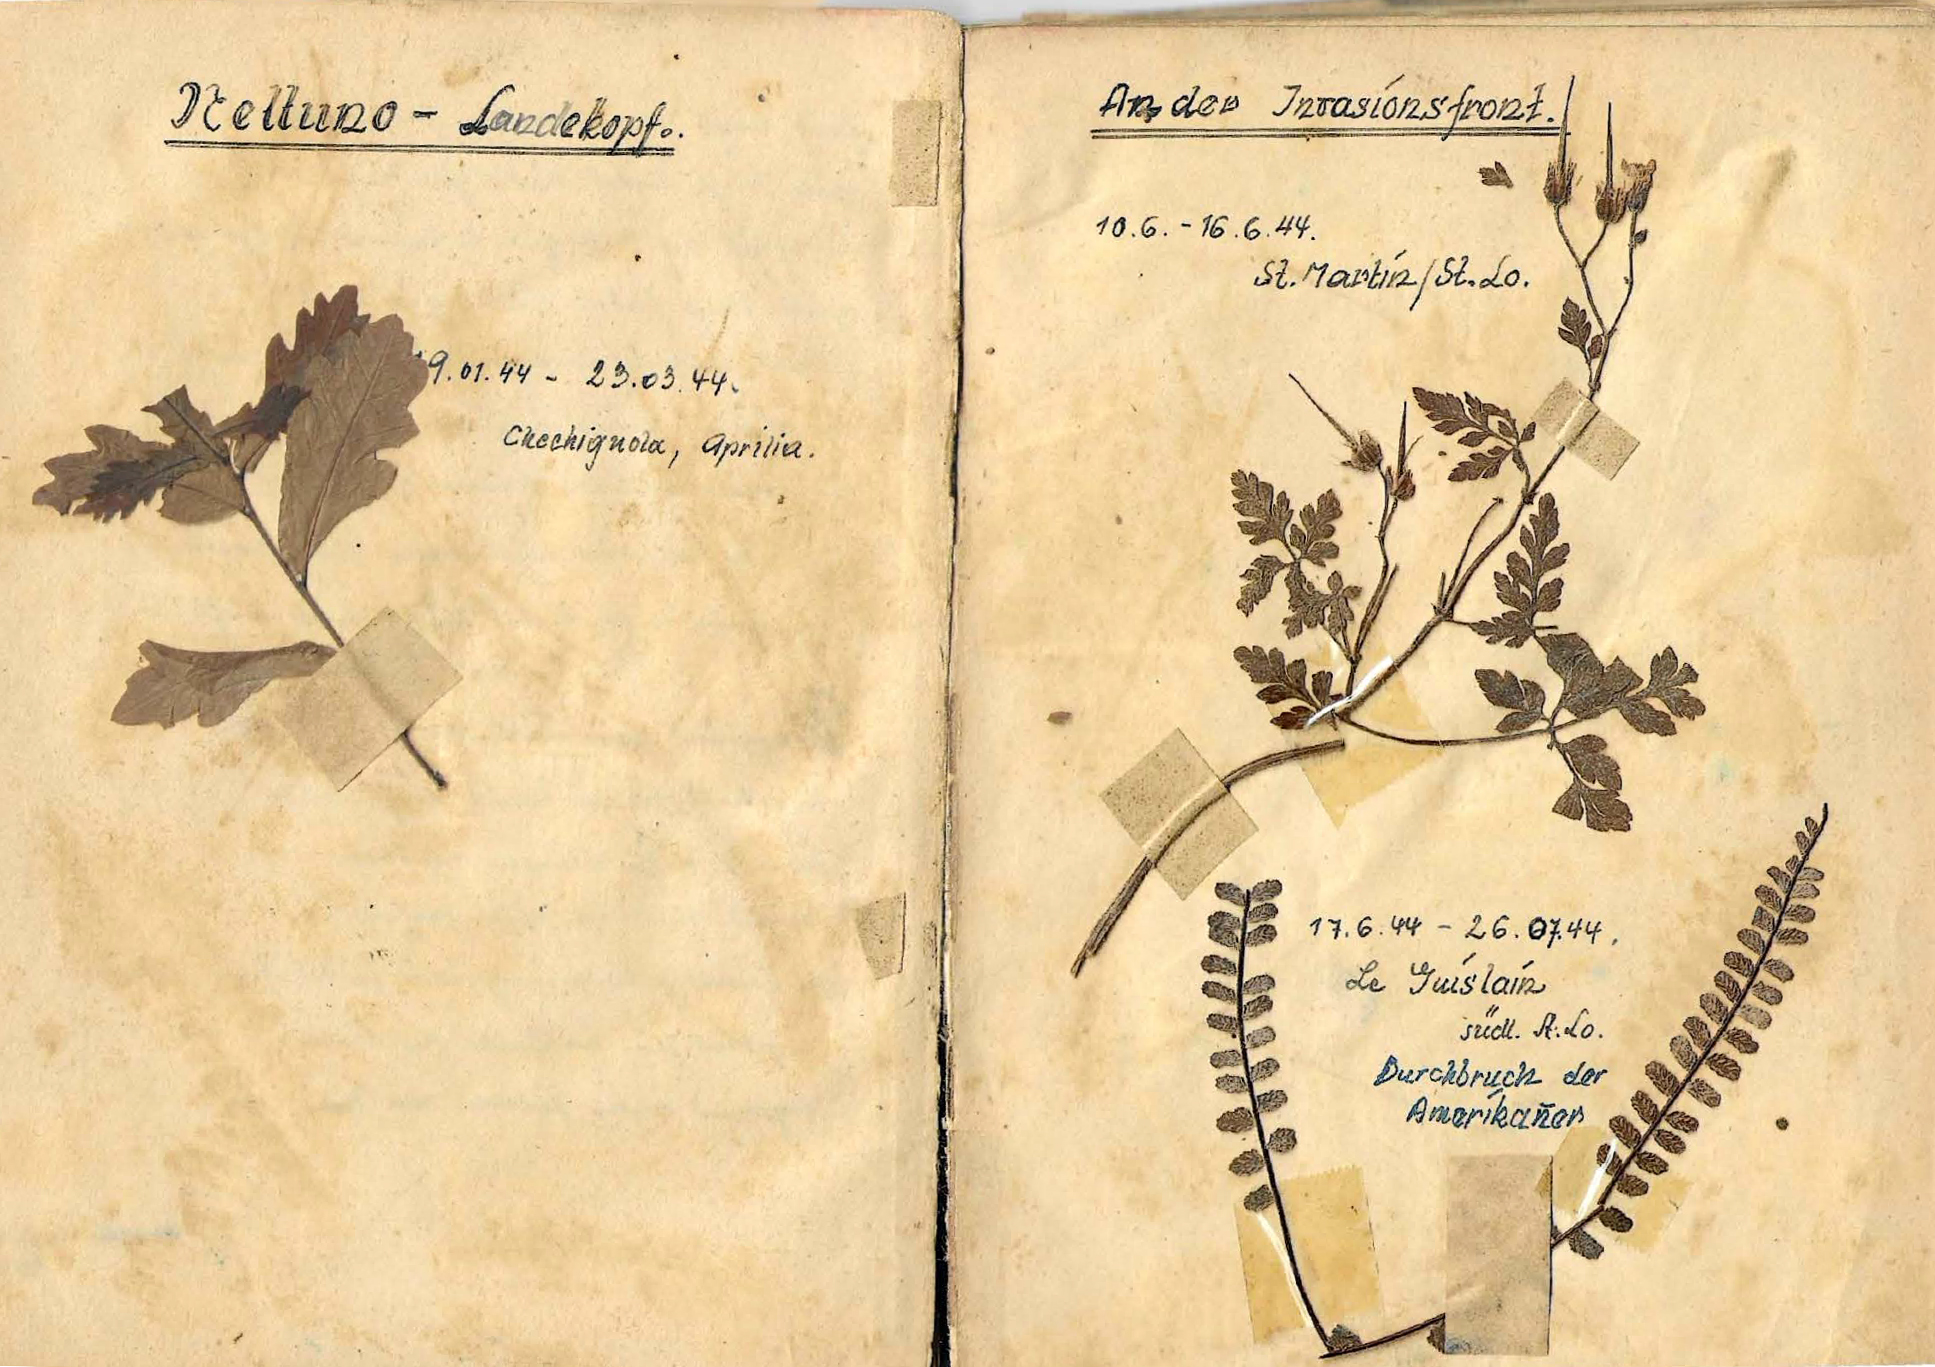 Nettuno - Landekopf.
19.01.44 - 23.03.44.
Chechignola, Aprilia.
An der Invasionsfront.
10.6. - 16.6.44.
St. Martin/St. Lo.
17.6.44 - 26.07.44.
Le Guislain
südl. St. Lo.
Durchbruch der
Amerikaner